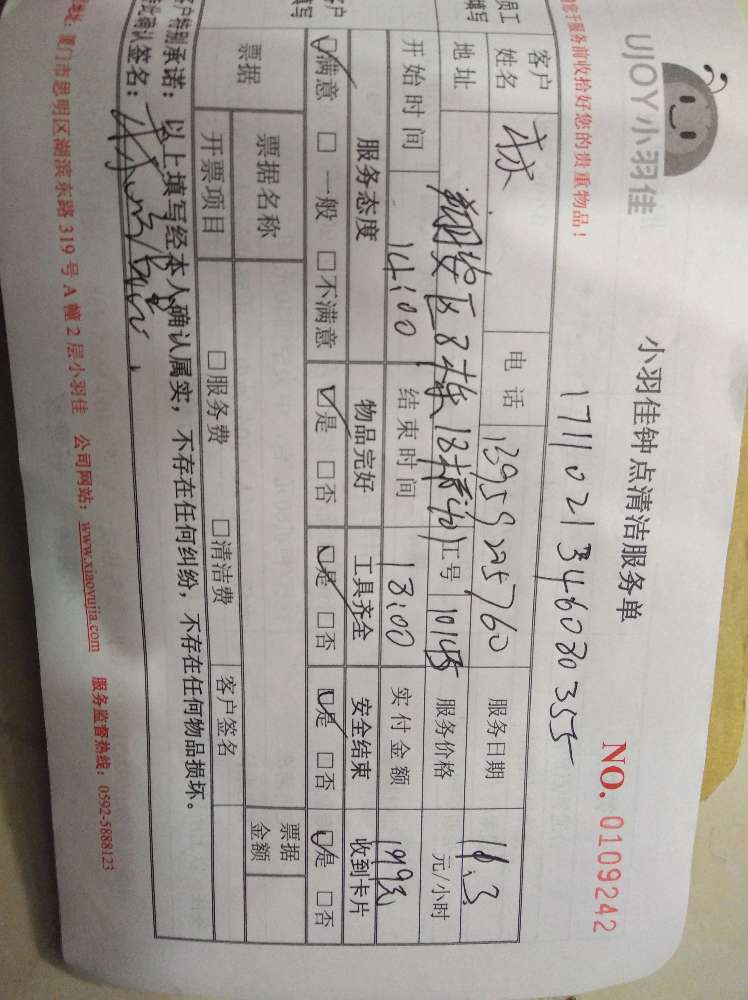 UJOY小羽佳
小羽佳钟点清洁服务单
NO. 0109242
171102134603035
于服务前收拾好您的贵重物品!
员工
填写
客户
姓名
电话
13959225760
服务日期
11.3
地址
翔安区
工号
服务价格
元/小时
开始时间
14:00
结束时间
18:00
实付金额
199元
客户
填写
服务态度
物品完好
工具齐全
安全结束
收到卡片
☑满意 □一般 □不满意
☑是 □否
☑是 □否
☑是 □否
☑是 □否
票据
票据名称
票据
金额
开票项目
□服务费 □清洁费
客户签名
客户特别承诺:以上填写经本人确认属实,不存在任何纠纷,不存在任何物品损坏。
确认签名:
地址:厦门市思明区湖滨东路 319 号 A 幢 2 层小羽佳 公司网站:www.xiaoyujia.com 服务监督热线:0592-5888123